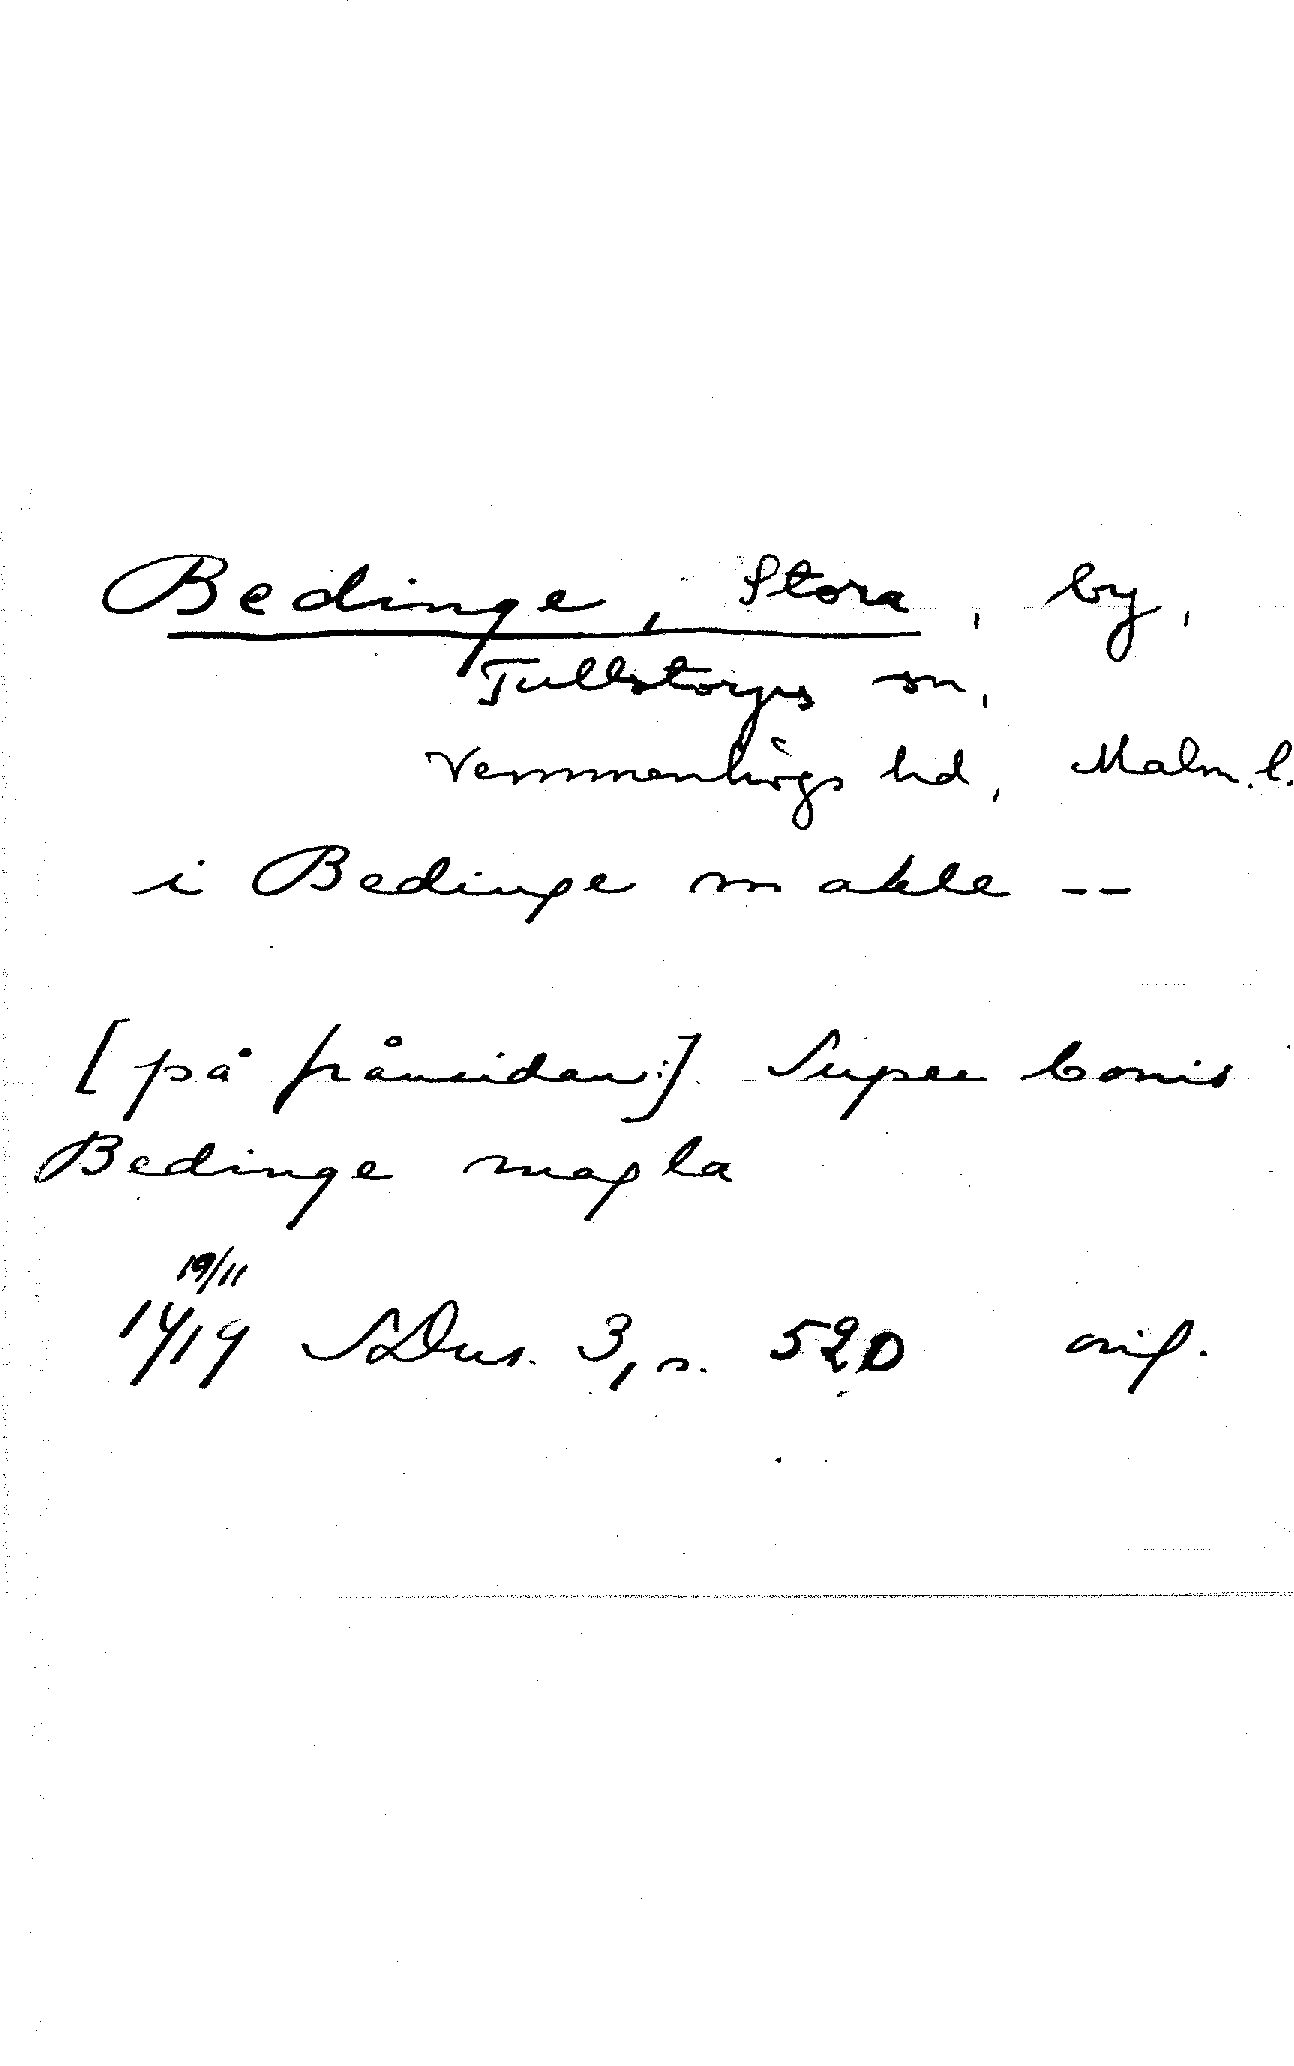 Bedinge, Stora, by,
Tullstorps sn,
Vemmenhögs hd, Malm. l.
i Bedinge makle --
[på frånsidan:] Super bonis
Bedinge magla
19/11
1419 SDns. 3, s. 520 orig.